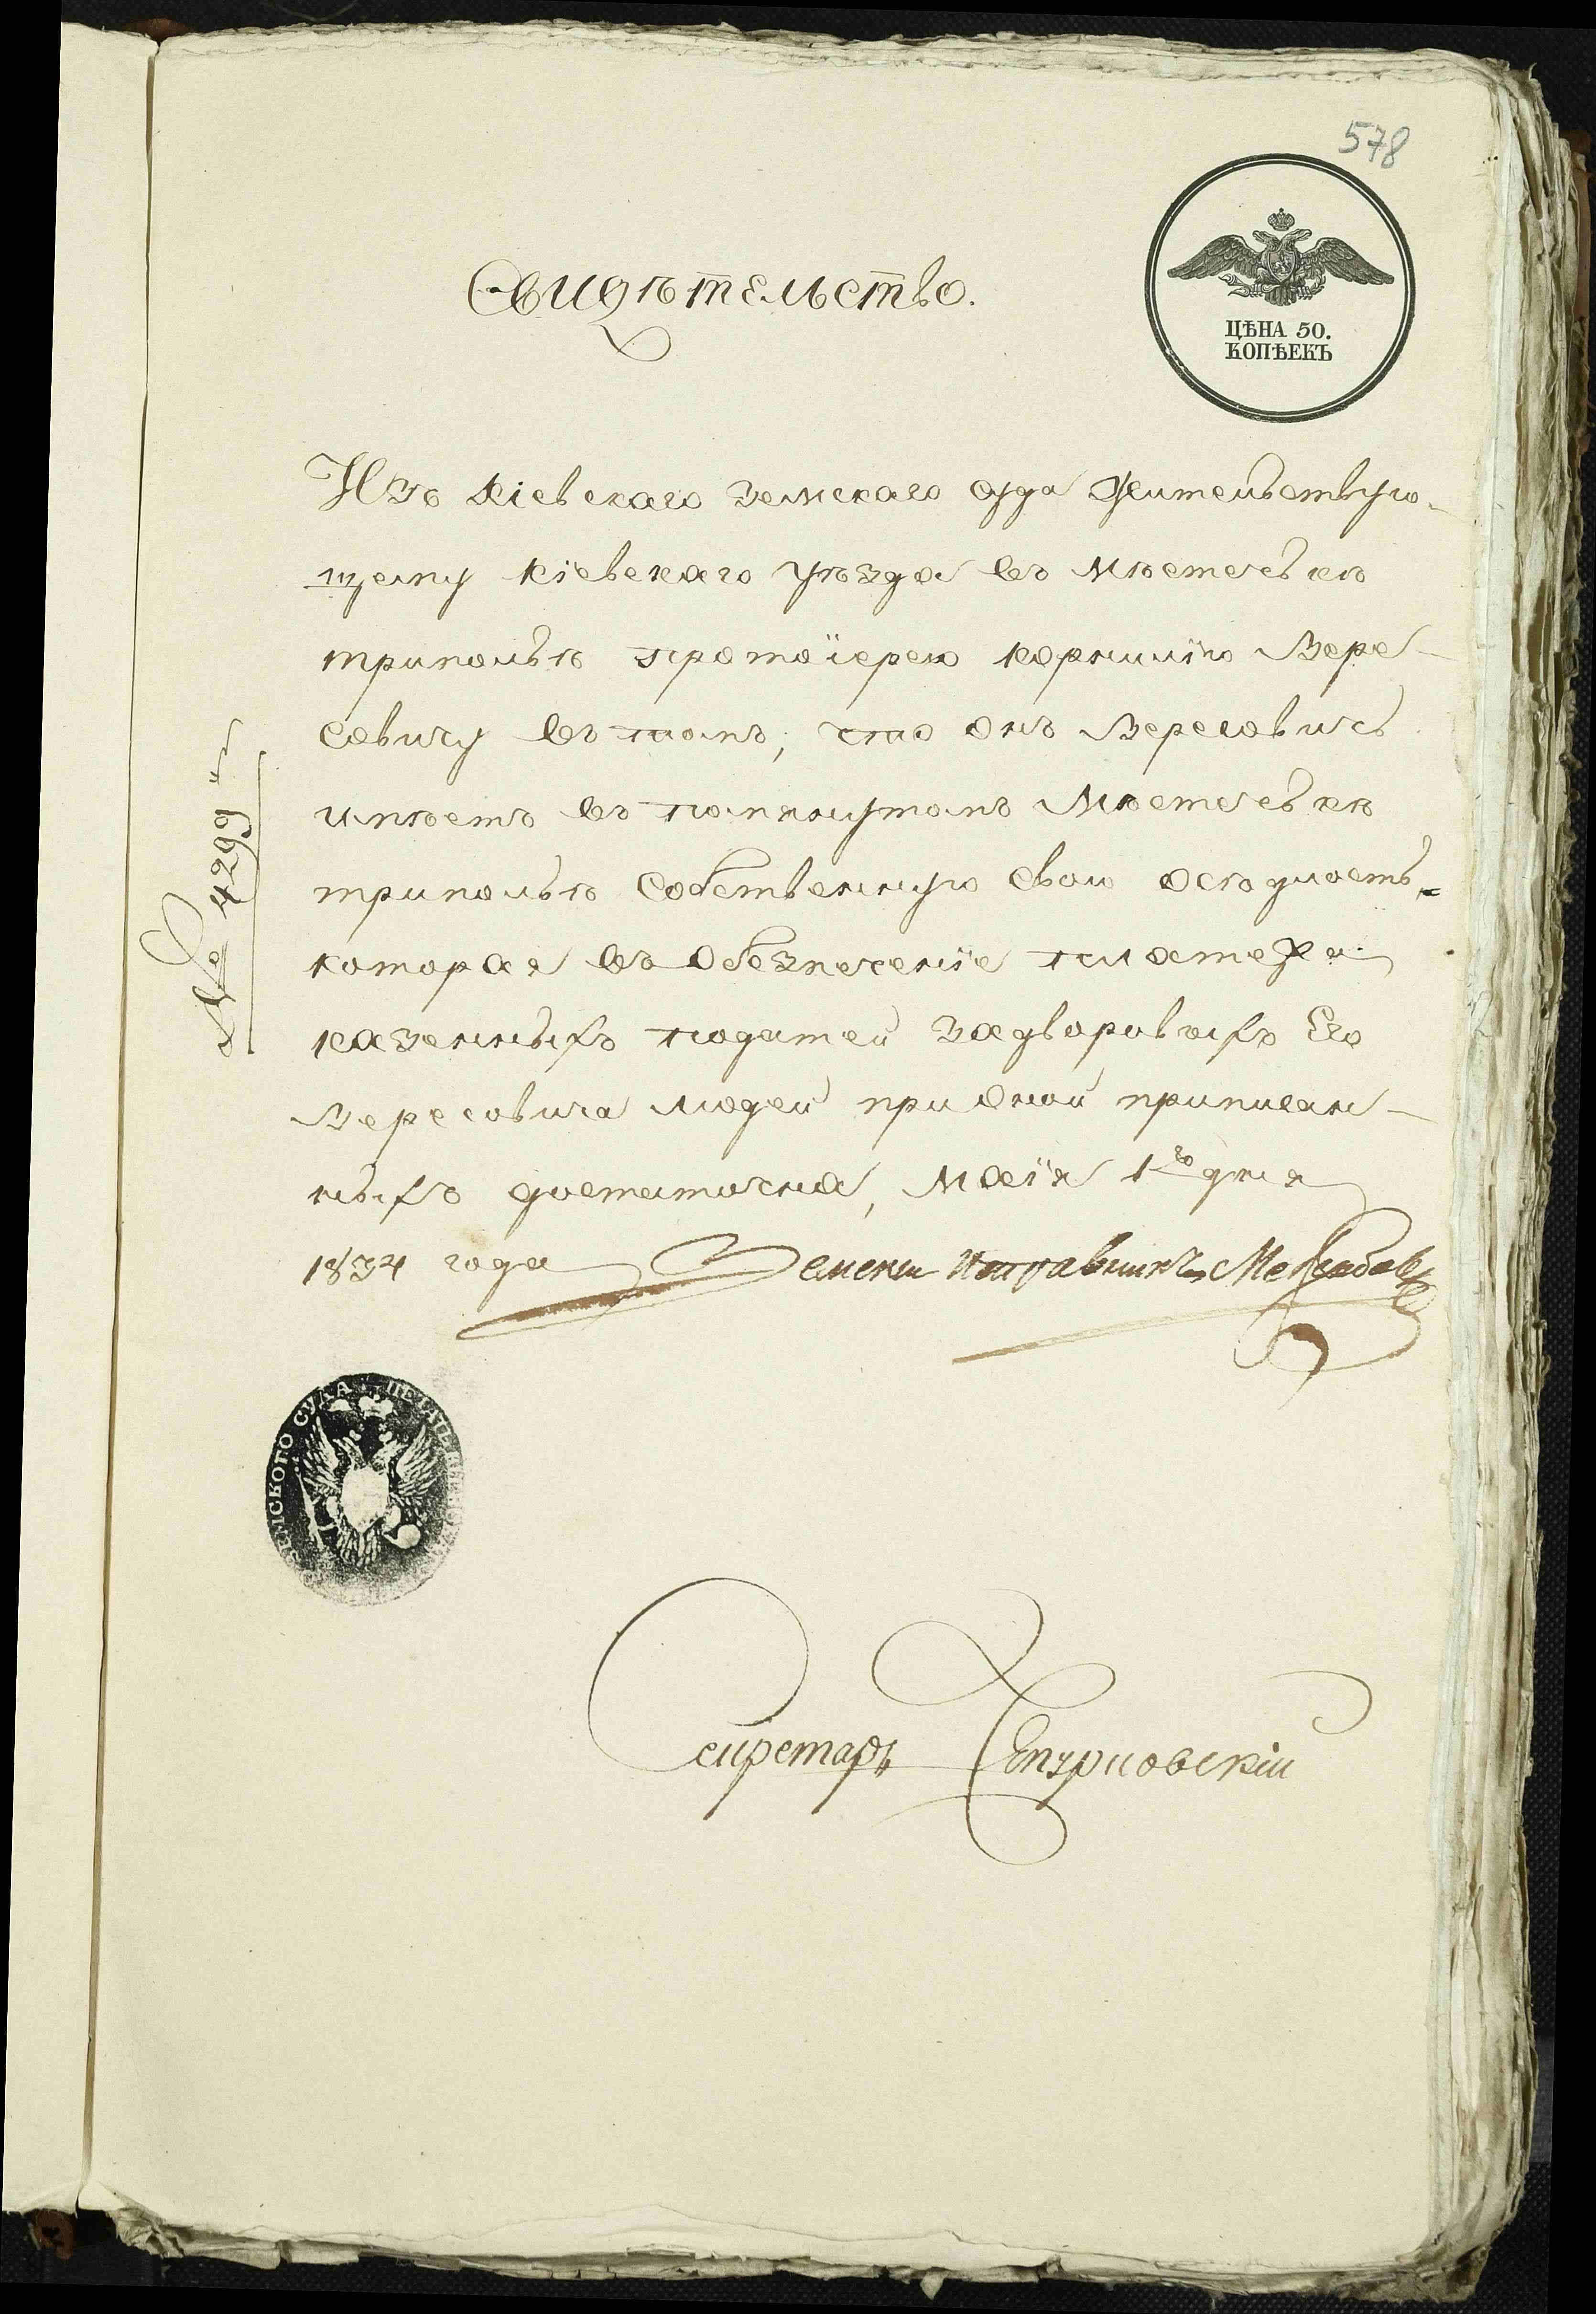 578
ЦѢНА 50.
КОПѢЕКЪ
Свидѣтельство.
Изъ Кіевскаго Земскаго суда Жительствую-
щему Кіевскаго уѣзда въ Мѣстечкѣ
трипольѣ протоіерею корнилію Вере-
Совичу въ томъ, что онъ Вересовичъ
имѣетъ въ помянутомъ Мѣстечкѣ
трипольѣ Собственную Свою осѣдлость,
которая въ Обезпеченіе платежа
казенныхъ податей Задворовыхъ Его
Вересовича людей при оной приписан-
ныхъ достаточна, Маія 1го дня
1834 года Земски Исправникъ
№ 4299й
ЗЕМСКОГО СУДА ПЕЧАТЬ
Сикретарь